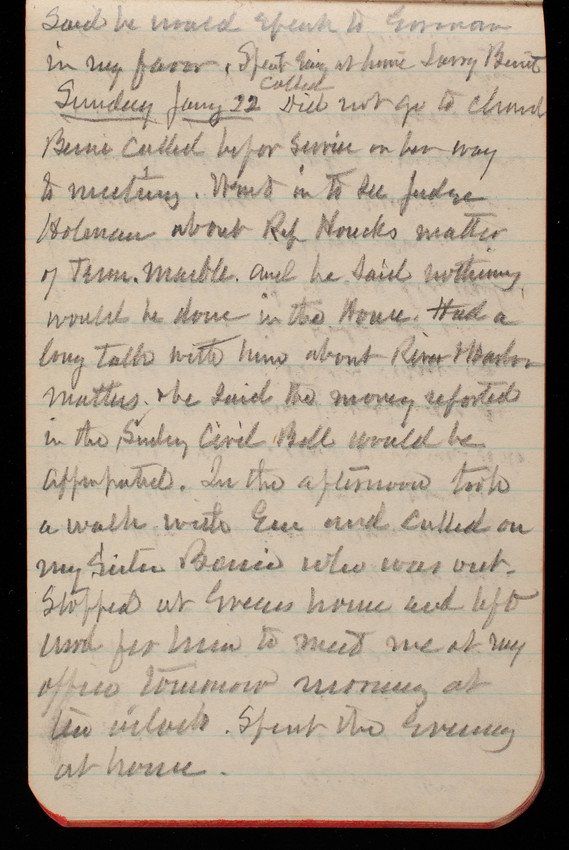 Said he would speak to Gorman
in my favor. Spent Eving at home Larry Bennet
called
Sunday Jany 22 Did not go to church
Bernie called befor Service on her way
to meeting. Went in to see Judge
Holman about Rep Houcks matter
of Tenn. Marble. and he said nothing
would be done in the House. Had a
long talk with him about River & Harbor
matters. & he said the money reported
in the Sundry Civil Bill would be
appropriated. In the afternoon took
a walk with Em and called on
my Sister who was out.
Stopped at Greens home and left
word for him to meet me at my
office tomorrow morning at
ten o'clock. Spent the Evening
at home.